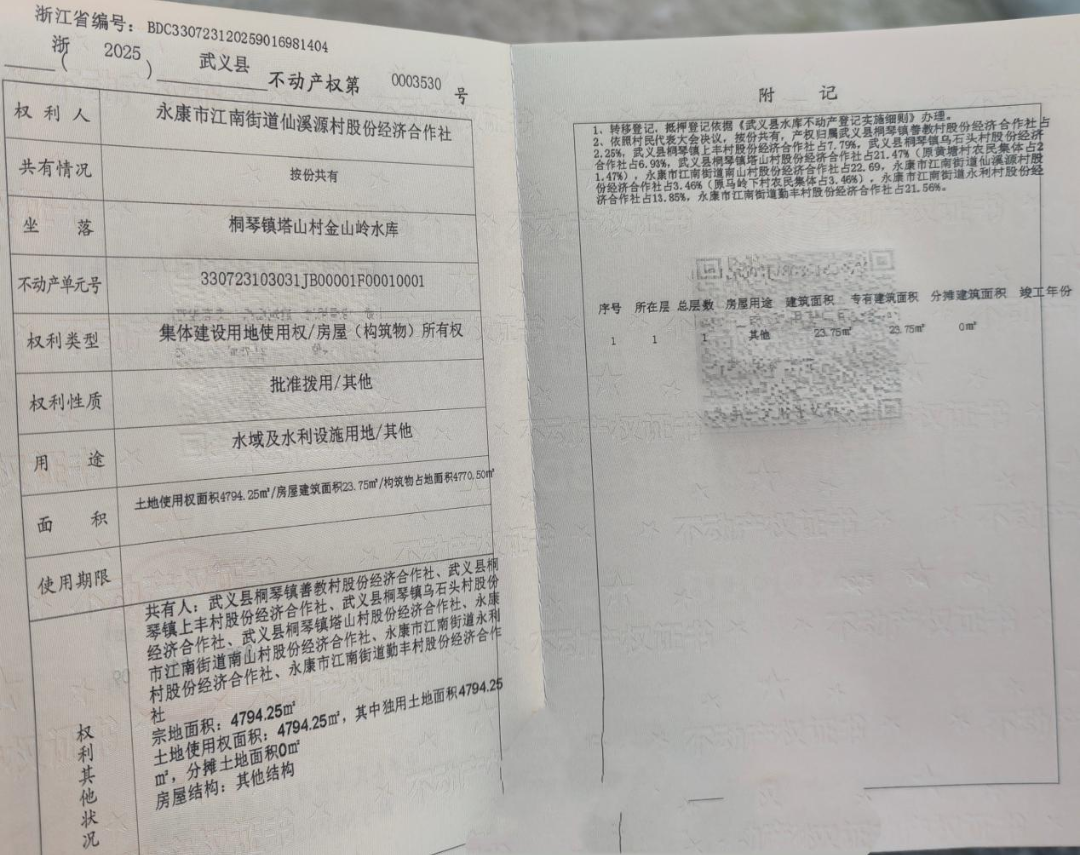 浙江省编号： BDC330723120259016981404
浙（ 2025 ） 武义县 不动产权第 0003530 号
权利人 永康市江南街道仙溪源村股份经济合作社
共有情况 按份共有
坐落 桐琴镇塔山村金山岭水库
不动产单元号 330723103031JB00001F00010001
权利类型 集体建设用地使用权/房屋（构筑物）所有权
权利性质 批准拨用/其他
用途 水域及水利设施用地/其他
面积 土地使用权面积4794.25㎡/房屋建筑面积23.75㎡/构筑物占地面积4770.50㎡
使用期限
权利其他状况
共有人：武义县桐琴镇善教村股份经济合作社、武义县桐
琴镇上丰村股份经济合作社、武义县桐琴镇乌石头村股份
经济合作社、武义县桐琴镇塔山村股份经济合作社、永康
市江南街道南山村股份经济合作社、永康市江南街道永利
村股份经济合作社、永康市江南街道勤丰村股份经济合作
社
宗地面积：4794.25㎡
土地使用权面积：4794.25㎡，其中独用土地面积4794.25
㎡，分摊土地面积0㎡
房屋结构：其他结构
附 记
1、转移登记，抵押登记依据《武义县水库不动产登记实施细则》办理。
2、依照村民代表大会决议，按份共有，产权归属武义县桐琴镇善教村股份经济合作社占
2.25%，武义县桐琴镇上丰村股份经济合作社占7.79%，武义县桐琴镇乌石头村股份经济
合作社占6.93%，武义县桐琴镇塔山村股份经济合作社占21.47%（原黄塘村农民集体占2
1.47%），永康市江南街道南山村股份经济合作社占22.69，永康市江南街道仙溪源村股
份经济合作社占3.46%（原马岭下村农民集体占3.46%），永康市江南街道永利村股份经
济合作社占13.85%，永康市江南街道勤丰村股份经济合作社占21.56%。
序号 所在层 总层数 房屋用途 建筑面积 专有建筑面积 分摊建筑面积 竣工年份
1 1 1 其他 23.75㎡ 23.75㎡ 0㎡